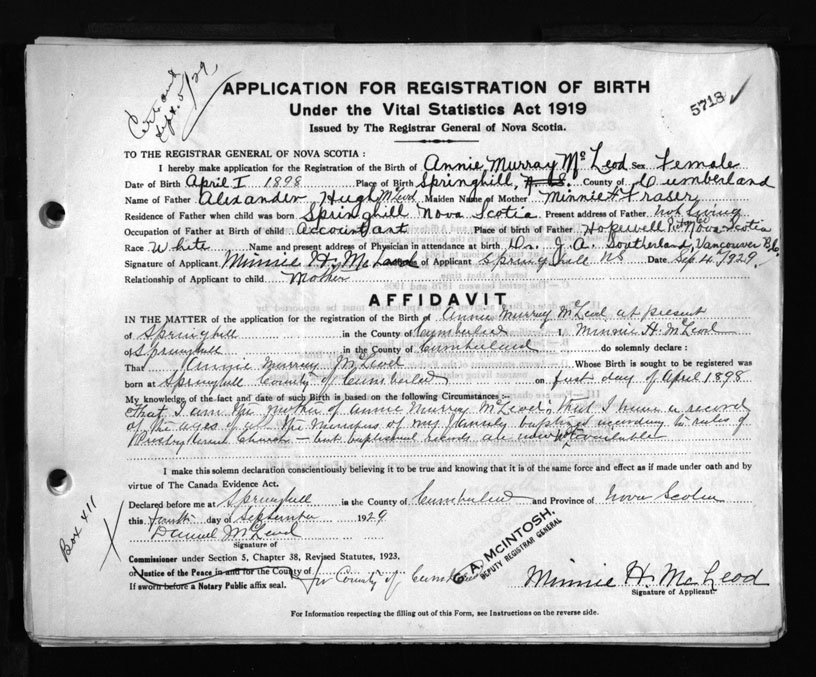 Cert and
Sept. 5/29
APPLICATION FOR REGISTRATION OF BIRTH
5713 ✓
Under the Vital Statistics Act 1919
Issued by The Registrar General of Nova Scotia.
TO THE REGISTRAR GENERAL OF NOVA SCOTIA :
I hereby make application for the Registration of the Birth of Annie Murray McLeod Sex Female
Date of Birth April 1 1898 Place of Birth Springhill, N.S. County of Cumberland
Name of Father Alexander Hugh McLeod Maiden Name of Mother Minnie H Fraser
Residence of Father when child was born Springhill Nova Scotia Present address of Father not living
Occupation of Father at Birth of child Accountant Place of birth of Father Hopewell Nova Scotia
Race White Name and present address of Physician in attendance at birth Dr. J. A. Southerland, Vancouver B.C.
Signature of Applicant Minnie H. McLeod of Applicant Spring hill NS Date Sep 4 1929.
Relationship of Applicant to child Mother
AFFIDAVIT
IN THE MATTER of the application for the registration of the Birth of Annie Murray McLeod at present
of Springhill in the County of Cumberland I, Minnie H. McLeod
of Springhill in the County of Cumberland do solemnly declare :
That Annie Murray McLeod Whose Birth is sought to be registered was
born at Springhill County of Cumberland on first day of April 1898
My knowledge of the fact and date of such Birth is based on the following Circumstances :-
that I am the mother of Annie Murray McLeod; that I have a record
of the ages of all the members of my family baptized according to rules of
Presbyterian Church - but baptismal records are now not available
I make this solemn declaration conscientiously believing it to be true and knowing that it is of the same force and effect as if made under oath and by
virtue of The Canada Evidence Act.
Declared before me at Springhill in the County of Cumberland and Province of Nova Scotia
this fourth day of September 1929
Daniel McLeod
Signature of
Commissioner under Section 5, Chapter 38, Revised Statutes, 1923.
or Justice of the Peace in and for the County of for County of Cumberland
If sworn before a Notary Public affix seal.
Box 411
G. A. McINTOSH,
DEPUTY REGISTRAR GENERAL
Minnie H. McLeod
Signature of Applicant.
For Information respecting the filling out of this Form, see Instructions on the reverse side.